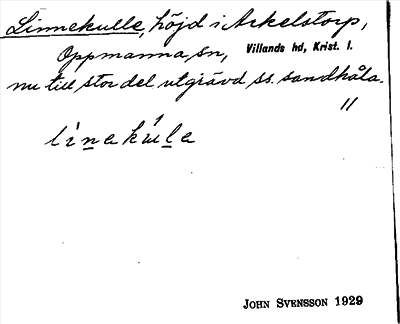 Linnekulle, höjd i Arkelstorp,
Oppmanna sn, Villands hd, Krist. l.
nu till stor del utgrävd ss. sandhåla.
"
linekula
JOHN SVENSSON 1929